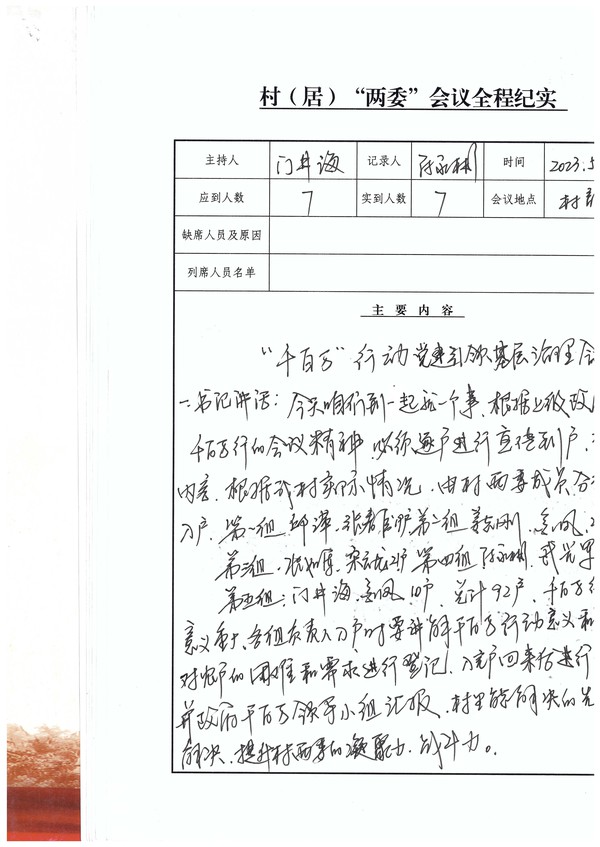 村（居）“两委”会议全程纪实
主持人 门井海 记录人 时间 2023.5
应到人数 7 实到人数 7 会议地点 村
缺席人员及原因
列席人员名单
主要内容
“千百万”行动党建引领基层治理会
一.书记讲话：今天咱们到一起就一个事，根据上级政
千百万行的会议精神，必须逐户进行宣传到户，
内容，根据我村实际情况，由村两委成员分
入户，第一组 第二组
第三组 第四组
第五组：门井海 10户，总计92户，千百万行
意义重大，各组负责入户时要讲解千百万行动意义和
对农户的困难和需求进行登记，入完户回来后进行
并政府千百万领导小组汇报，村里能解决的先
解决，提升村两委的凝聚力，战斗力。